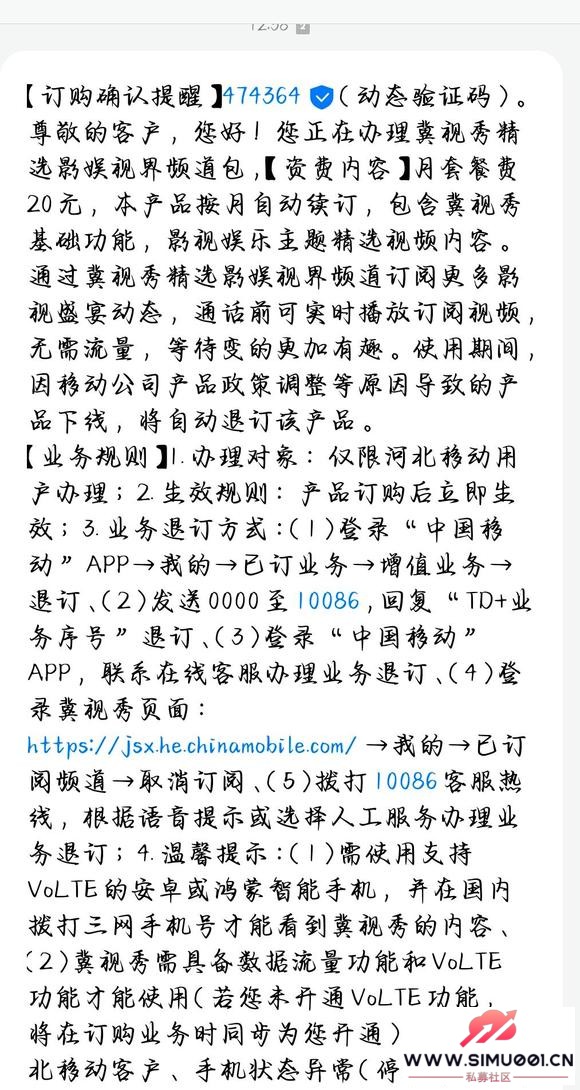 12:58 2
【订购确认提醒】474364（动态验证码）。
尊敬的客户，您好！您正在办理冀视秀精
选影娱视界频道包，【资费内容】月套餐费
20元，本产品按月自动续订，包含冀视秀
基础功能，影视娱乐主题精选视频内容。
通过冀视秀精选影娱视界频道订阅更多影
视盛宴动态，通话前可实时播放订阅视频，
无需流量，等待变的更加有趣。使用期间，
因移动公司产品政策调整等原因导致的产
品下线，将自动退订该产品。
【业务规则】1.办理对象：仅限河北移动用
户办理；2.生效规则：产品订购后立即生
效；3.业务退订方式：（1）登录“中国移
动”APP→我的→已订业务→增值业务→
退订、（2）发送0000至10086，回复“TD+业
务序号”退订、（3）登录“中国移动”
APP，联系在线客服办理业务退订、（4）登
录冀视秀页面：
https://jsx.he.chinamobile.com/→我的→已订
阅频道→取消订阅、（5）拨打10086客服热
线，根据语音提示或选择人工服务办理业
务退订；4.温馨提示：（1）需使用支持
VoLTE的安卓或鸿蒙智能手机，并在国内
拨打三网手机号才能看到冀视秀的内容、
（2）冀视秀需具备数据流量功能和VoLTE
功能才能使用（若您未开通VoLTE功能，
将在订购业务时同步为您开通）
北移动客户、手机状态异常（停
WWW.SIMU001.CN
私募社区